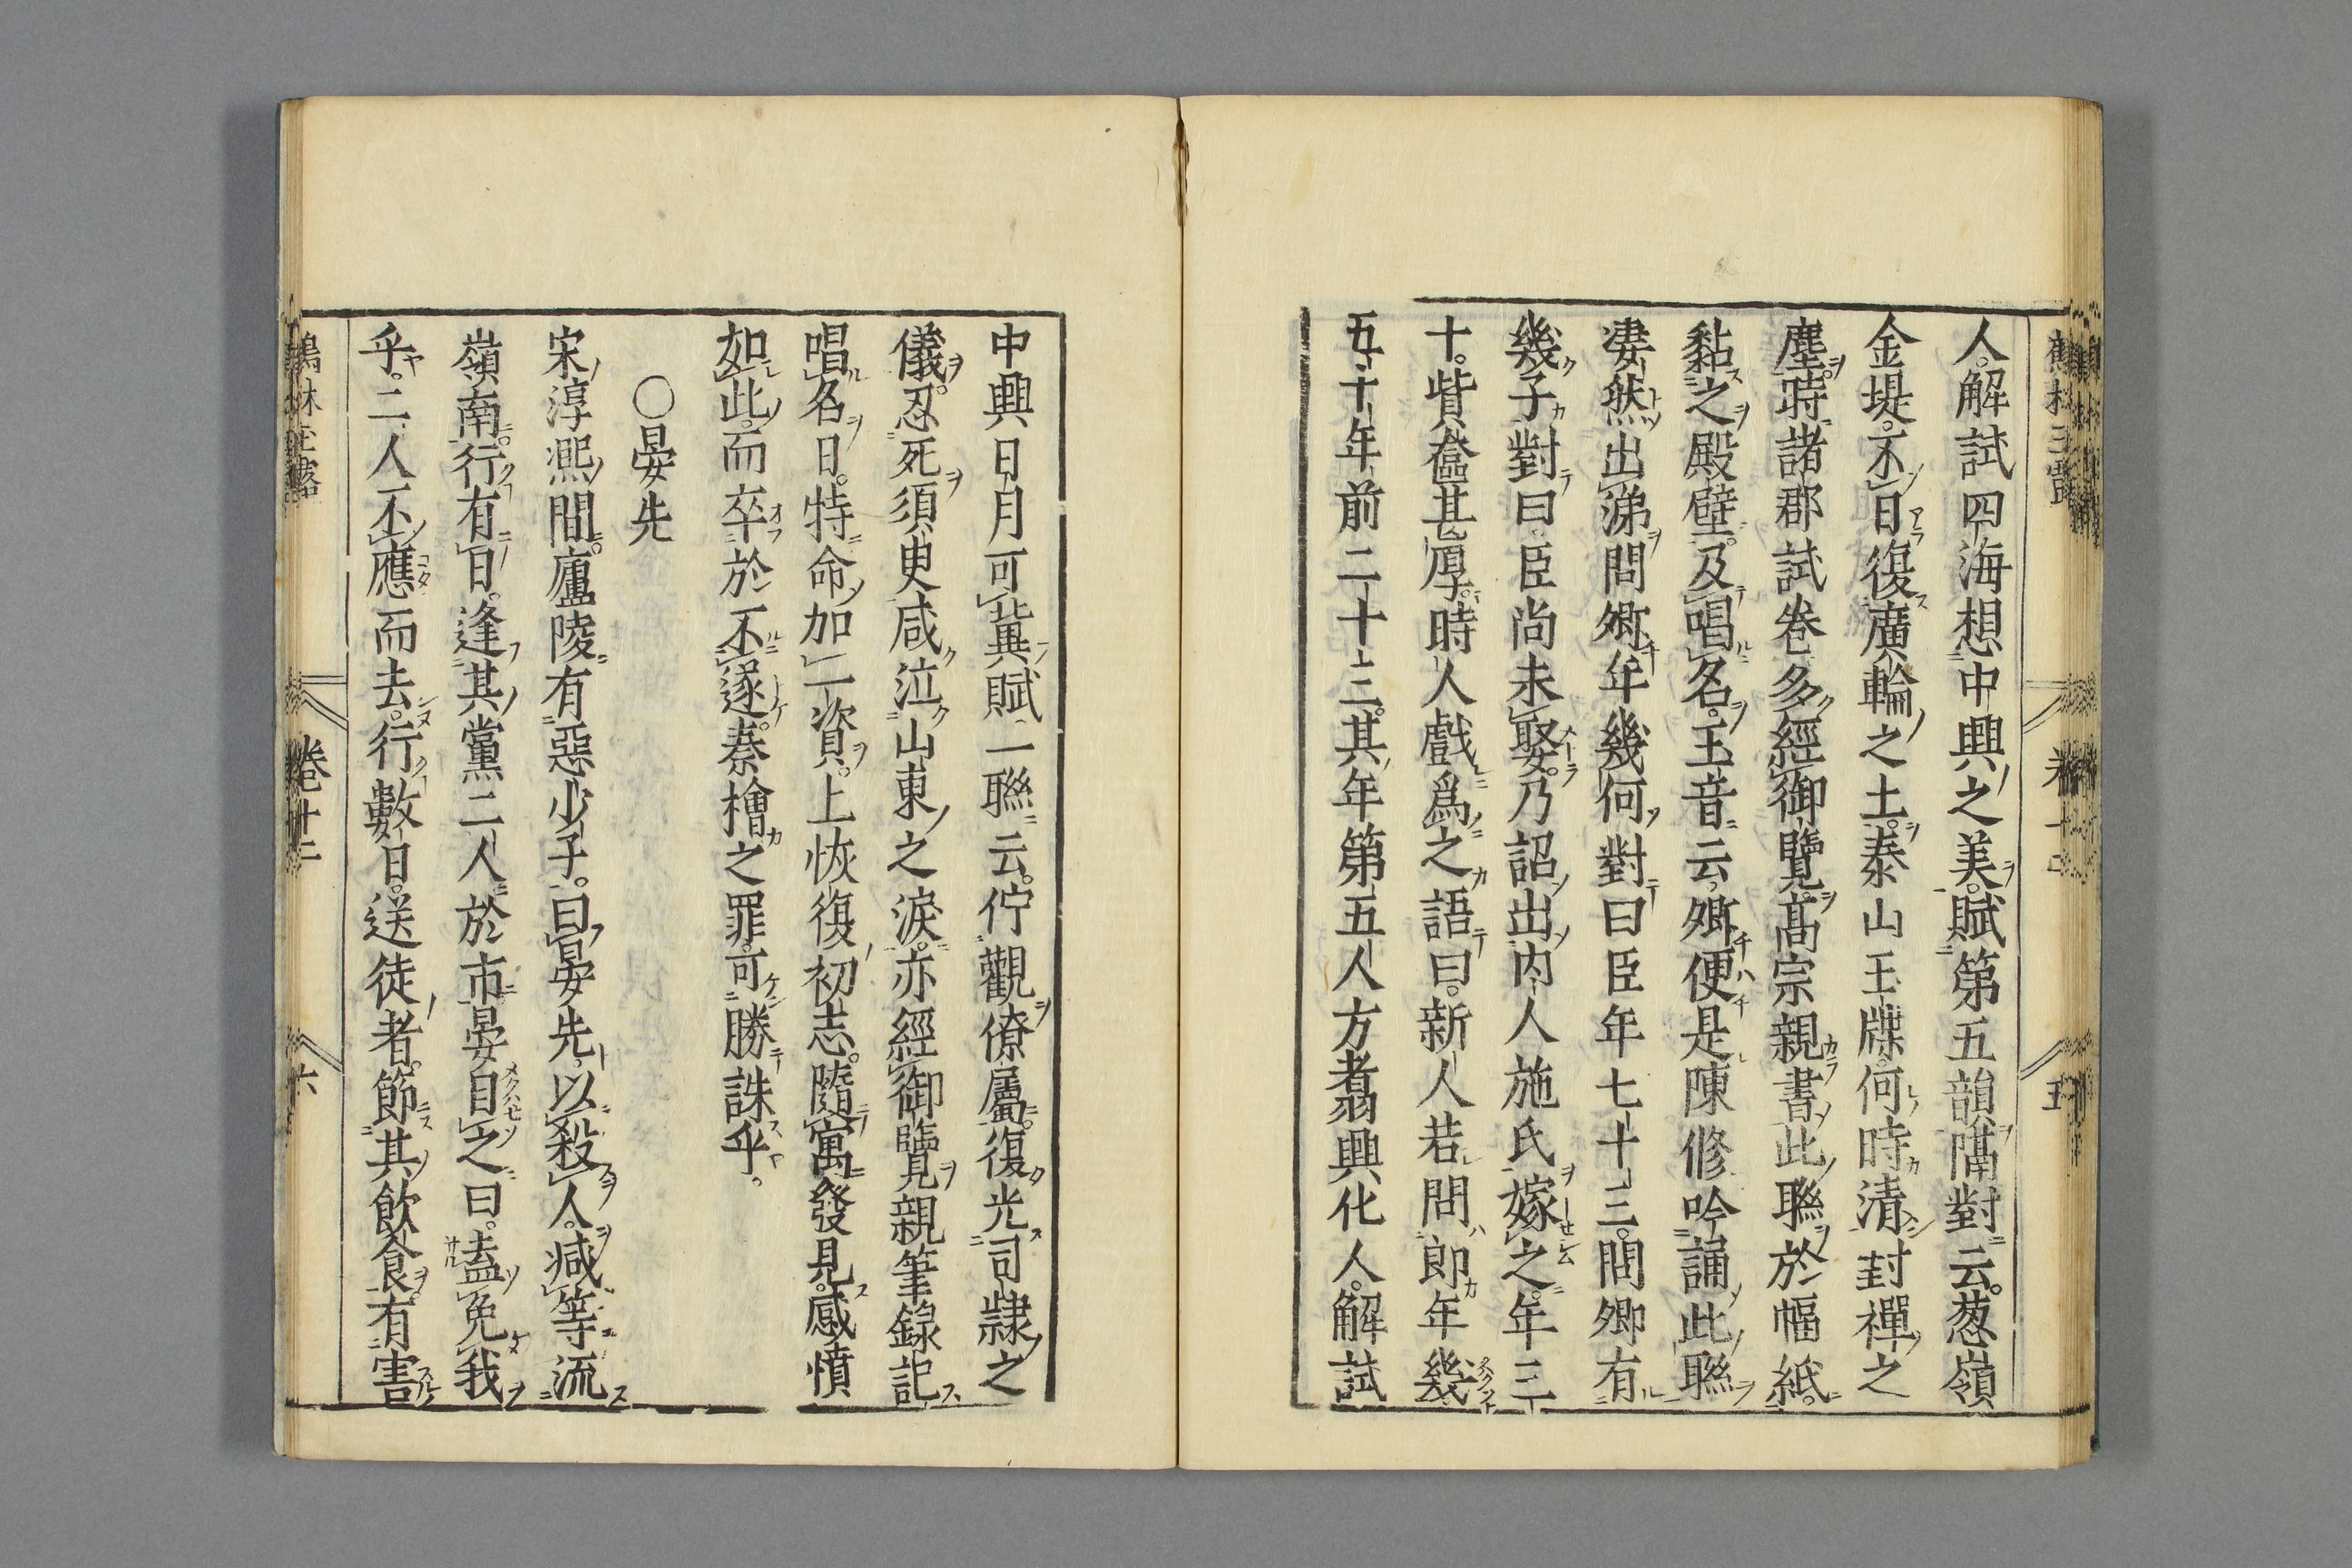 人解試四海想中興之美賦第五韻隔對云葱嶺
金堤不日復廣輪之土泰山玉牒何時清封禪之
塵時諸郡試卷多經御覽髙宗親書此聯於幅紙
黏之殿壁及唱名玉音云卿便是陳修吟誦此聯
凄然出涕問卿年幾何對曰臣年七十三問卿有
幾子對曰臣尚未娶乃詔出内人施氏嫁之年三
十貲奩甚厚時人戲爲之語曰新人若問郎年幾
五十年前二十三其年第五人方翥興化人解試
中興日月可兾賦一聯云佇觀僚屬復光司隷之
儀忍死須臾咸泣山東之淚亦經御覽親筆錄記
唱名日特命加一資上恢復初志隨寓發見感憤
如此而卒於不遂秦檜之罪可勝誅乎
〇晏先
宋淳熙間廬陵有惡少子曰晏先以殺人减等流
嶺南行有日逢其黨二人於市晏目之曰盍免我
乎二人不應而去行數日送徒者節其飲食有害
卷十二
六